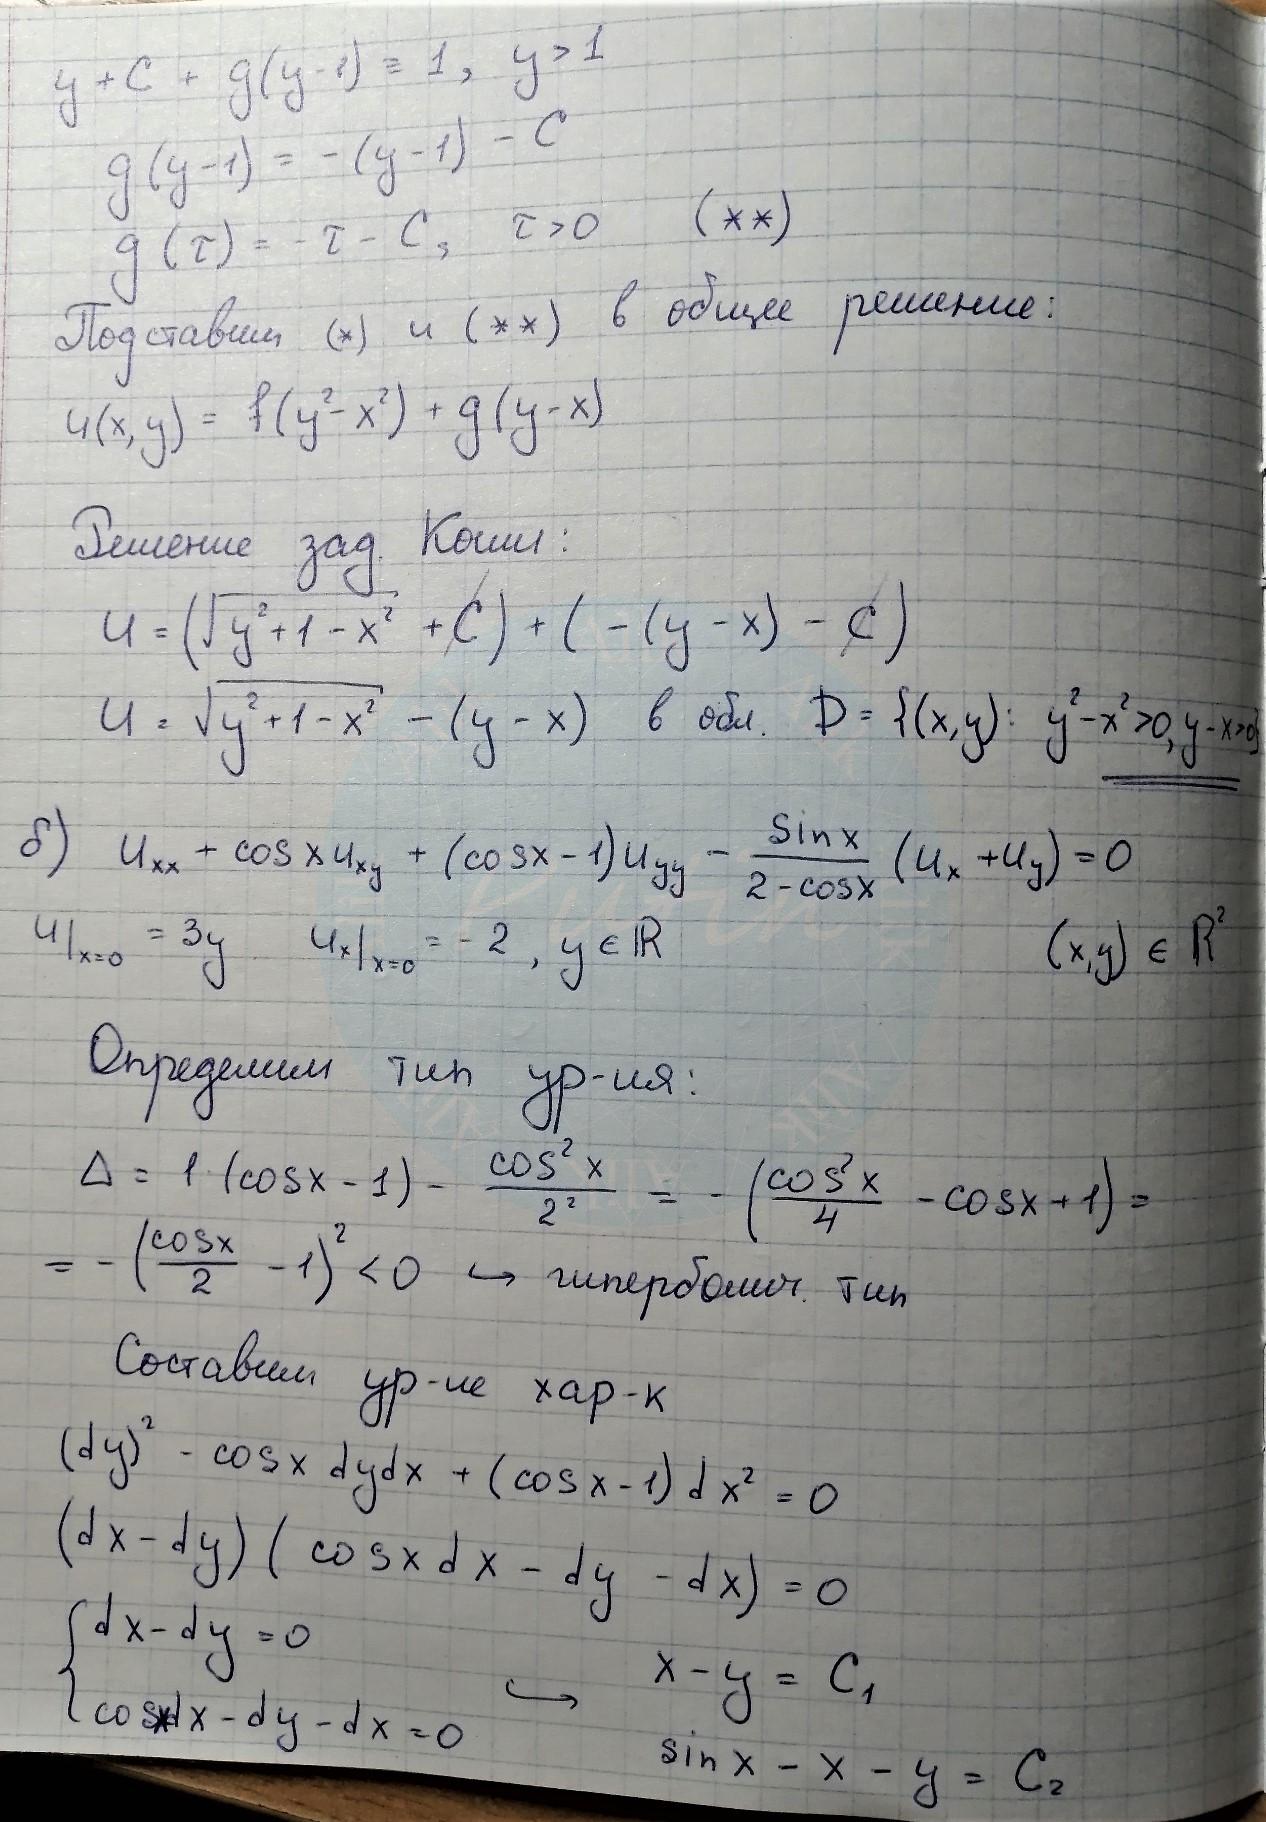 y + C + g(y-1) = 1, y > 1
g(y-1) = -(y-1) - C
g(τ) = -τ - C, τ > 0 (**)
Подставим (*) и (**) в общее решение:
u(x,y) = f(y²-x²) + g(y-x)
Решение зад. Коши:
u = (√(y²+1-x²) + C) + (-(y-x) - C)
u = √(y²+1-x²) - (y-x) в обл. D = {(x,y): y²-x²>0, y-x>0}
б) u_xx + cosx u_xy + (cosx-1)u_yy - sinx/(2-cosx) (u_x + u_y) = 0
u|_x=0 = 3y u_x|_x=0 = -2, y ∈ ℝ (x,y) ∈ ℝ²
Определим тип ур-ия:
Δ = 1·(cosx-1) - cos²x/2² = -(cos²x/4 - cosx + 1) =
= -(cosx/2 - 1)² < 0 ↪ гиперболич. тип
Составим ур-ие хар-к
(dy)² - cosx dydx + (cosx-1)dx² = 0
(dx-dy)(cosx dx - dy - dx) = 0
{ dx-dy = 0
cosxdx - dy - dx = 0 ↪ x - y = C₁
sinx - x - y = C₂